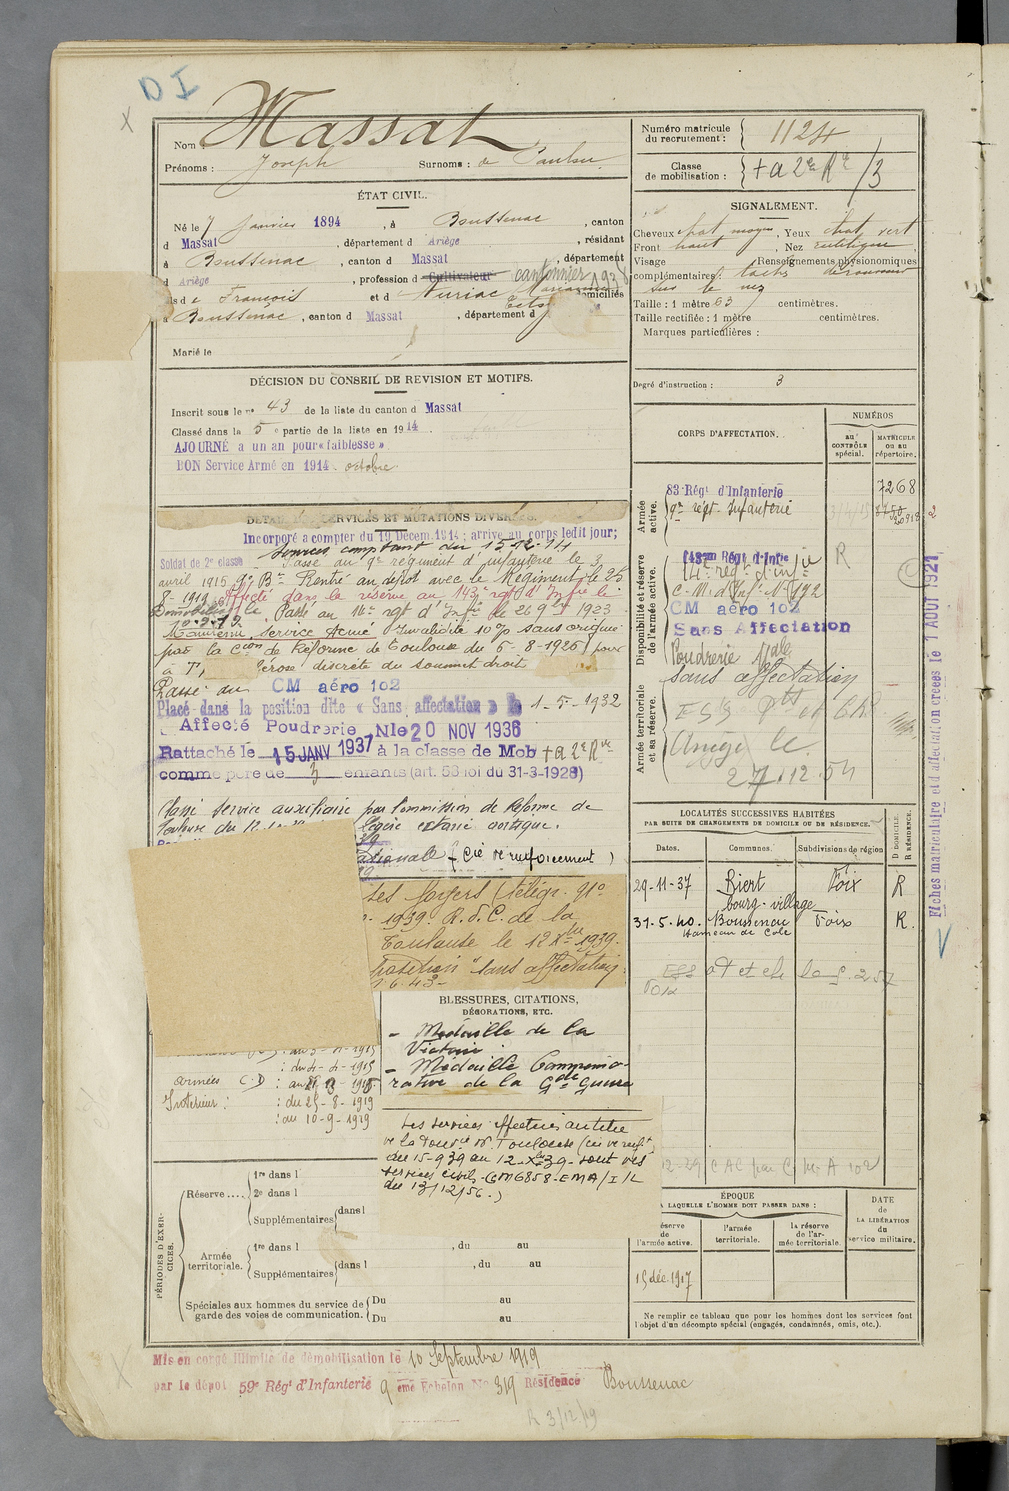 D I
Nom : Massat
Prénoms : Joseph Surnoms : de Paulou
ÉTAT CIVIL.
Né le 7 Janvier 1894, à Boussenac, canton
d Massat, département d Ariège, résidant
à Boussenac, canton d Massat, département
d Ariège, profession d Cultivateur cantonnier 1938
fils de François et d Nuriac Marianne domiciliés
à Boussenac, canton d Massat, département d
Marié le
DÉCISION DU CONSEIL DE REVISION ET MOTIFS.
Inscrit sous le n° 43 de la liste du canton d Massat
Classé dans la 5e partie de la liste en 1914.
AJOURNÉ à un an pour « faiblesse »
BON Service Armé en 1914 octobre
DÉTAIL DES SERVICES ET MUTATIONS DIVERSES.
Incorporé a compter du 19 Décem. 1914 ; arrivé au corps ledit jour;
Soldat de 2e classe
services comptant du 15-12-14
Passé au 9e régiment d'infanterie le 3
avril 1915. Rentré au dépôt avec le Régiment le 25
8-1919. Affecté dans la réserve au 143e rgt d'Infie le
Démobilisé le 10-9-19 Passé au 14e rgt d'Infie le 26 9bre 1923
Maintenu Service Armé Invalidité 10 % sans origine
par la Cion de Réforme de Toulouse du 6-8-1926 pour
discrète du sommet droit
Passé au CM aéro 102
Placé dans la position dite « Sans affectation » le 1-5-1932
Affecté Poudrerie Nle 20 NOV 1936
Rattaché le 15 JANV 1937 à la classe de Mob + a 2e Rve
comme père de 3 enfants (art. 58 loi du 31-3-1928)
Classé service auxiliaire par Commission de Réforme de
Toulouse du Légère ectasie aortique.
ationale (Cie de renforcement)
ses foyers (télégr. 910
1939 R.d.C. de la
Toulouse le 12 Xbre 1939.
position "sans affectation
1.6.43-
BLESSURES, CITATIONS,
DÉCORATIONS, ETC.
- Médaille de la
Victoire
- Médaille Commémo-
rative de la Gde Guerre
: au 3-4-1915
: du 4-4-1915
armées C.D :
Intérieur : : du 25-8-1919
: au 10-9-1919
Les services effectués au titre
de la Poudrie de Toulouse (cie de renft)
du 15-9-39 au 12-Xbre-39- sont des
services civils-(CM 6858-EMA/I/L
du 13/12/56.)
PÉRIODES D'EXERCICES.
Réserve.... 1re dans l
2e dans l
Supplémentaires dans l
Armée territoriale. 1re dans l , du au
Supplémentaires dans l , du au
Spéciales aux hommes du service de garde des voies de communication. Du au
Du au
Mis en congé illimité de démobilisation le 10 Septembre 1919
par le dépôt 59e Régt d'Infanterie 9 eme Echelon No 319 Résidence Boussenac
R 3/12/19
Numéro matricule du recrutement : 1124
Classe de mobilisation : + a 2e Rve /3
SIGNALEMENT.
Cheveux chat moyen, Yeux chat vert
Front haut, Nez rectiligne
Visage Renseignements physionomiques
complémentaires : tache de rousseur
sur le nez
Taille : 1 mètre 63 centimètres.
Taille rectifiée : 1 mètre centimètres.
Marques particulières :
Degré d'instruction : 3
CORPS D'AFFECTATION.
NUMÉROS
au CONTRÔLE spécial.
MATRICULE OU AU répertoire.
Armée active.
83e Régt d'Infanterie 7268
9e régt Infanterie
Disponibilité et réserve de l'armée active.
143me Régt d'Infie R
14e régt d'infie
CM aéro 102
Sans Affectation
Poudrerie Nale
sans affectation
Armée territoriale et sa réserve.
Ariège le
27.12.54
LOCALITÉS SUCCESSIVES HABITÉES
PAR SUITE DE CHANGEMENTS DE DOMICILE OU DE RÉSIDENCE.
Dates. Communes. Subdivisions de région D DOMICILE. R RÉSIDENCE.
29-11-37 Biert bourg-village Foix R
31-5-40. Boussenac Foix R.
Hameau de Cole
12-29 CAC par CM A 102
ÉPOQUE
A LAQUELLE L'HOMME DOIT PASSER DANS :
réserve de l'armée active.
l'armée territoriale.
la réserve de l'armée territoriale.
DATE DE LA LIBÉRATION du service militaire.
15 déc. 1917
Ne remplir ce tableau que pour les hommes dont les services font
l'objet d'un décompte spécial (engagés, condamnés, omis, etc.).
Fiches matriculaire et d'affectation créées le 1 AOUT 1921